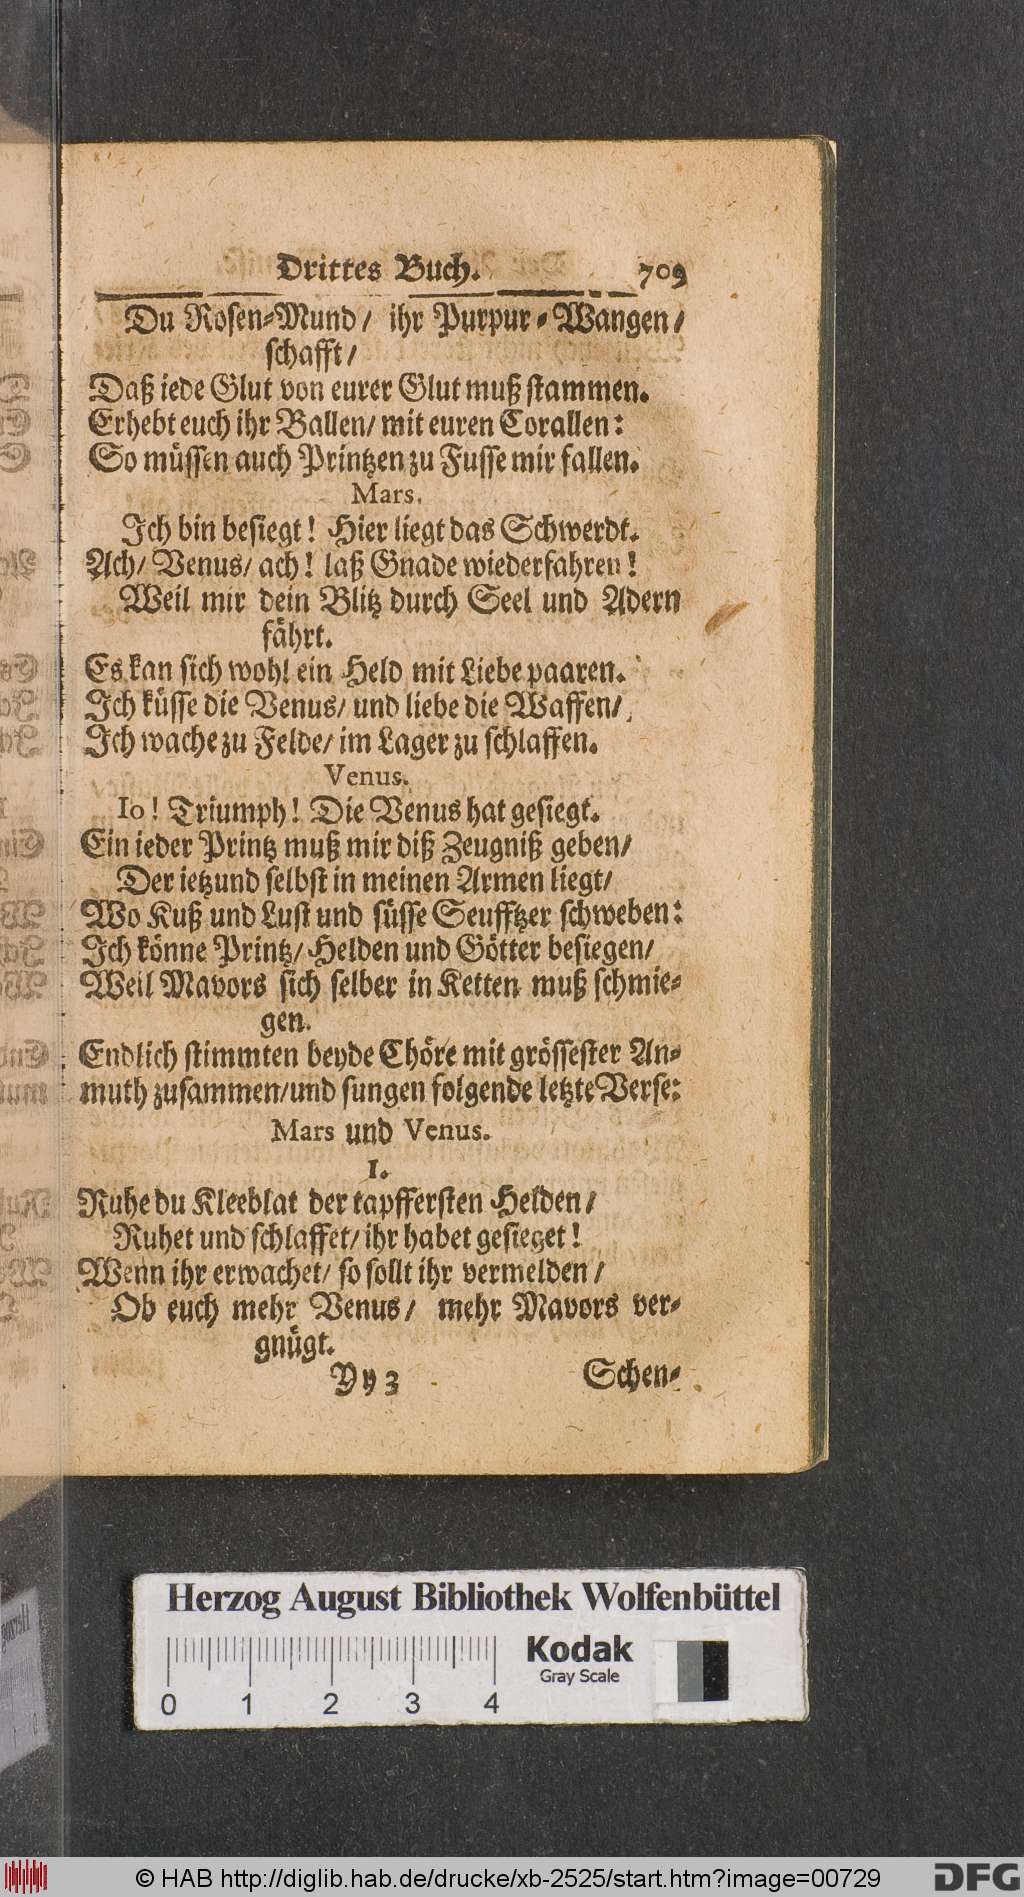 Drittes Buch. 709
Du Rosen-Mund / ihr Purpur-Wangen /
schafft /
Daß iede Glut von eurer Glut muß stammen.
Erhebt euch ihr Ballen / mit euren Corallen:
So müssen auch Printzen zu Fusse mir fallen.
Mars.
Ich bin besiegt! Hier liegt das Schwerdt.
Ach / Venus / ach! laß Gnade wiederfahren!
Weil mir dein Blitz durch Seel und Adern
fährt.
Es kan sich wohl ein Held mit Liebe paaren.
Ich küsse die Venus / und liebe die Waffen /
Ich wache zu Felde / im Lager zu schlaffen.
Venus.
Io! Triumph! Die Venus hat gesiegt.
Ein ieder Printz muß mir diß Zeugniß geben /
Der ietzund selbst in meinen Armen liegt /
Wo Kuß und Lust und süsse Seufftzer schweben:
Ich könne Printz / Helden und Götter besiegen /
Weil Mavors sich selber in Ketten muß schmie-
gen.
Endlich stimmten beyde Chöre mit grössester An-
muth zusammen / und sungen folgende letzte Verse:
Mars und Venus.
1.
Ruhe du Kleeblat der tapffersten Helden /
Ruhet und schlaffet / ihr habet gesieget!
Wenn ihr erwachet / so sollt ihr vermelden /
Ob euch mehr Venus / mehr Mavors ver-
gnügt.
Yy 3 Schen-
Herzog August Bibliothek Wolfenbüttel
Kodak
Gray Scale
0 1 2 3 4
© HAB http://diglib.hab.de/drucke/xb-2525/start.htm?image=00729
DFG